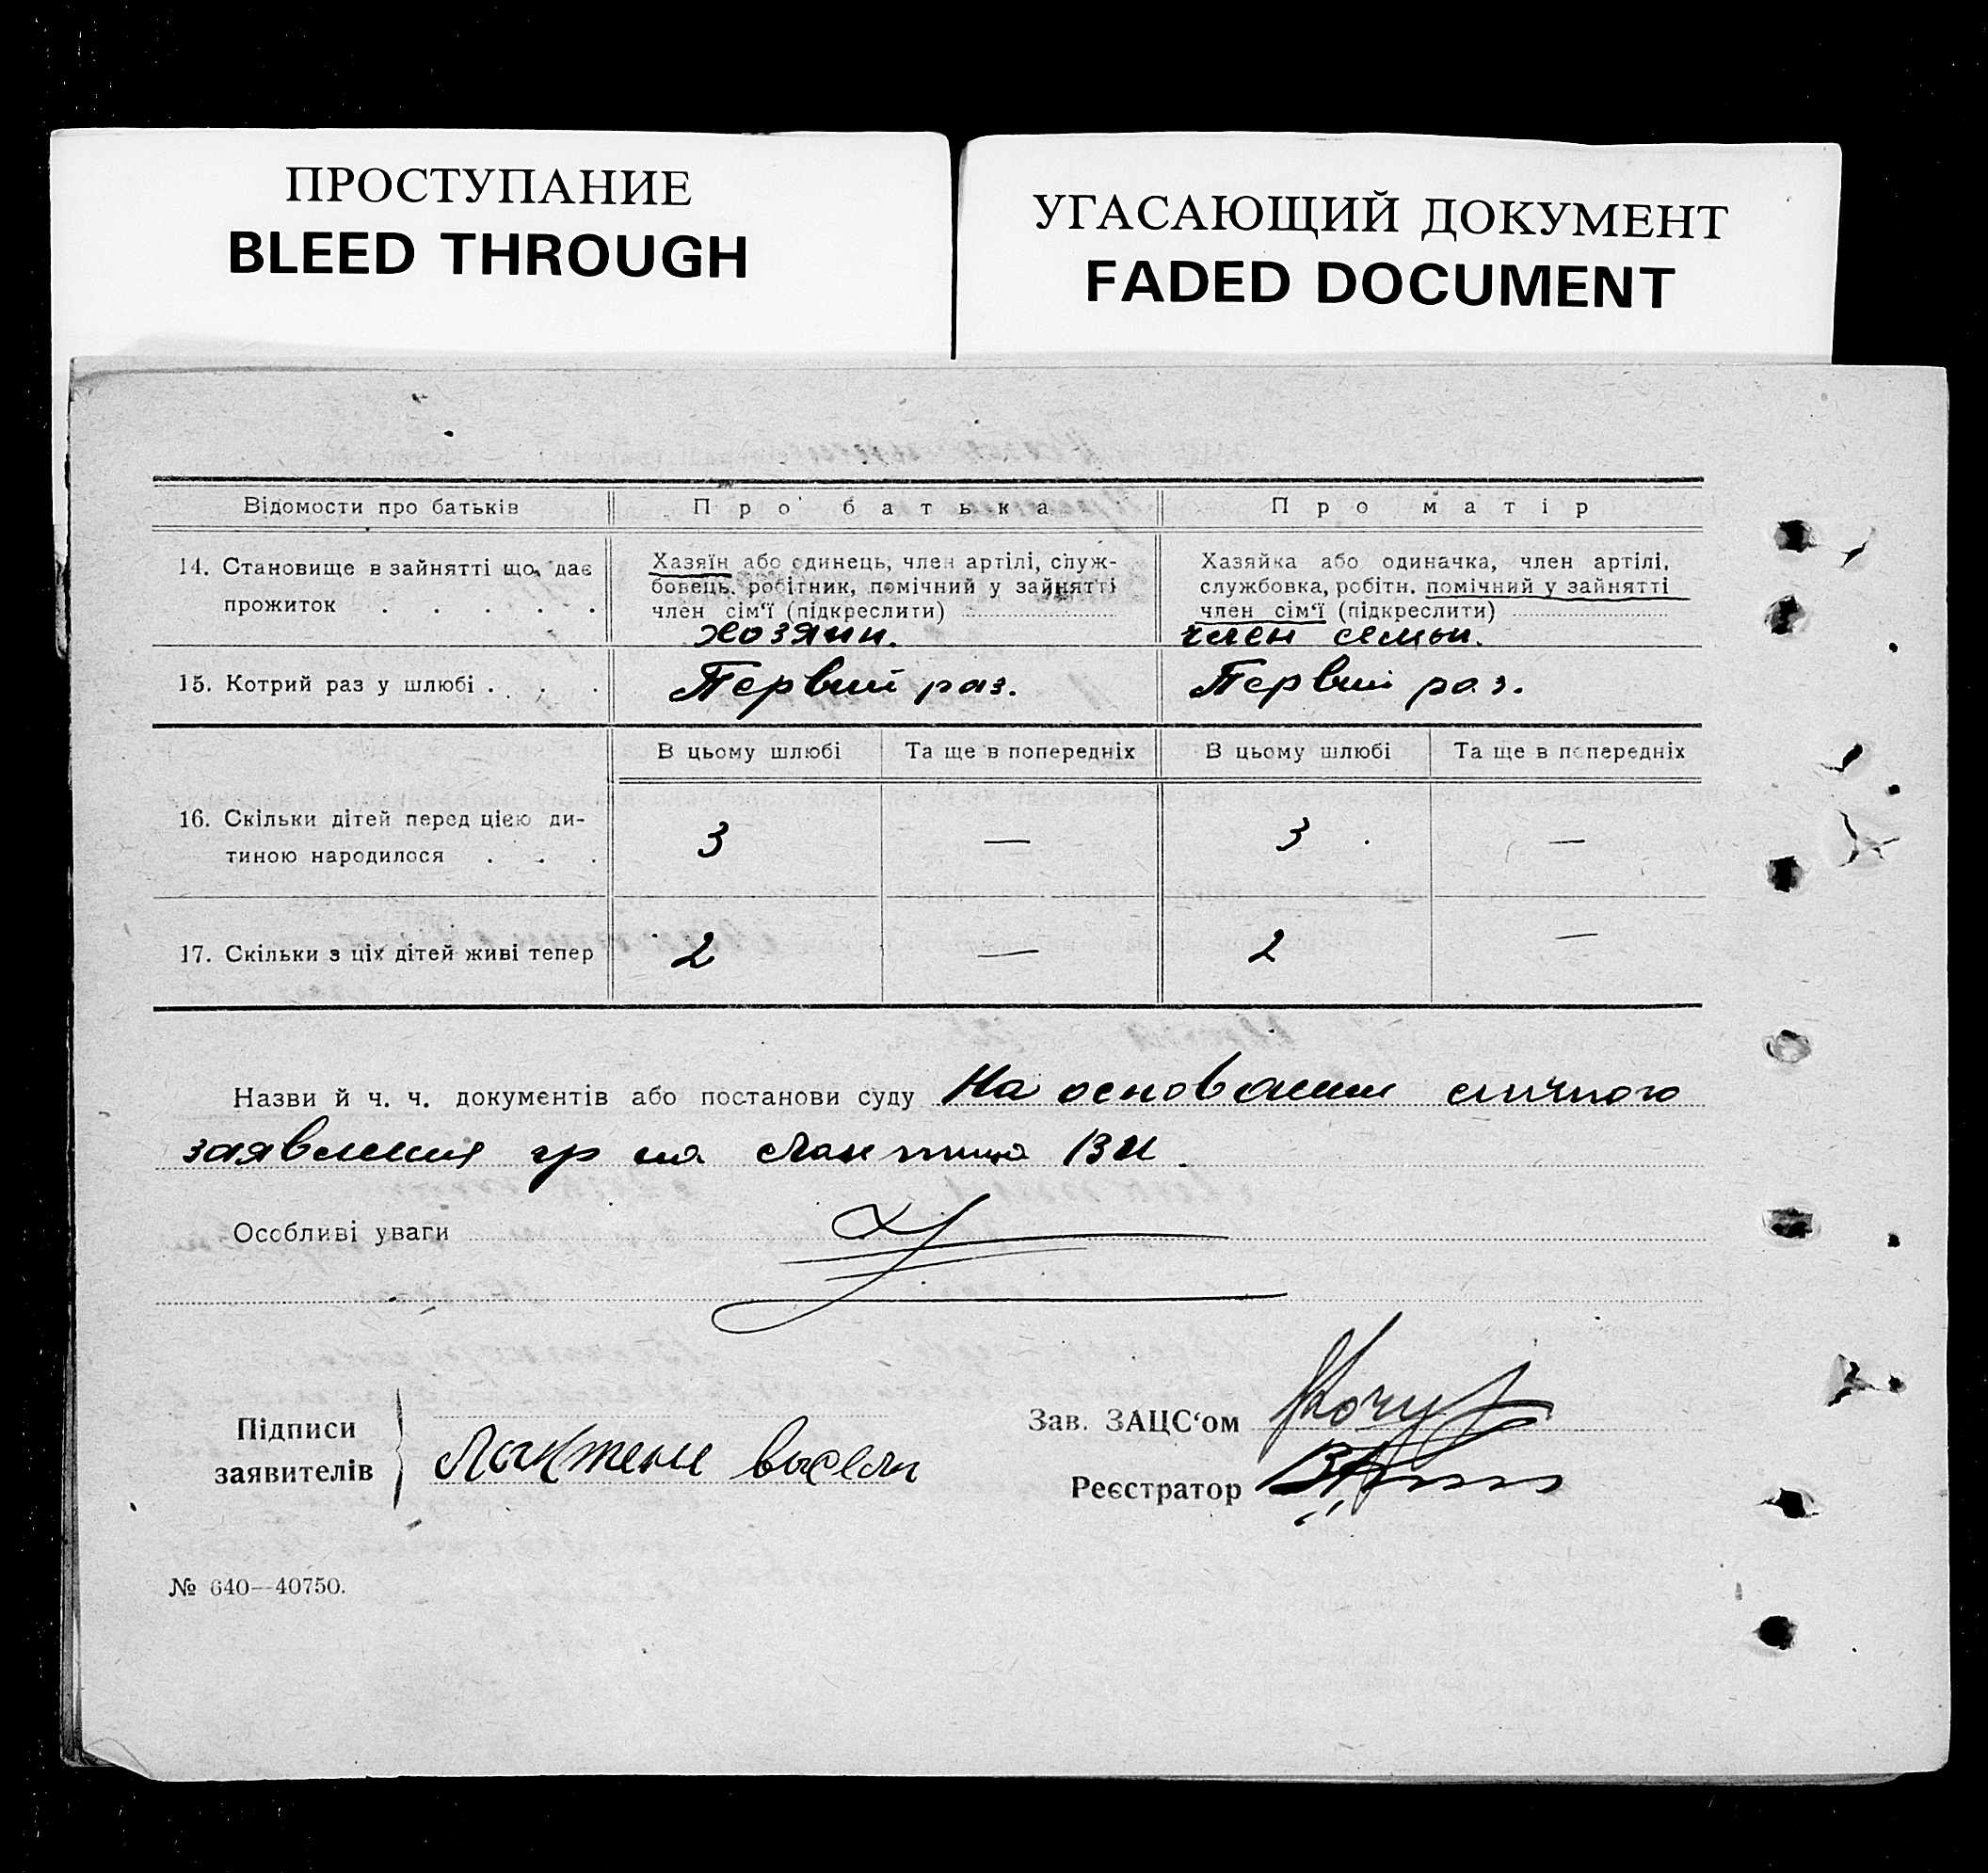 ПРОСТУПАНИЕ
BLEED THROUGH
УГАСАЮЩИЙ ДОКУМЕНТ
FADED DOCUMENT
Відомости про батьків
Про батька
Про матір
14. Становище в зайнятті що дає
прожиток . . . . .
Хазяїн або одинець, член артілі, служ-
бовець, робітник, помічний у зайнятті
член сім'ї (підкреслити)
хозяин.
Хазяйка або одиначка, член артілі,
службовка, робітн. помічний у зайнятті
член сім'ї (підкреслити)
член семьи.
15. Котрий раз у шлюбі . . . .
Первий раз.
Первий раз.
В цьому шлюбі
Та ще в попередніх
В цьому шлюбі
Та ще в попередніх
16. Скільки дітей перед цією ди-
тиною народилося . . .
3
—
3
—
17. Скільки з ціх дітей живі тепер
2
—
2
—
Назви й ч. ч. документів або постанови суду На основании личного
заявления гр на
Особливі уваги
Підписи
заявителів
Зав. ЗАЦС'ом
Реєстратор
№ 640—40750.